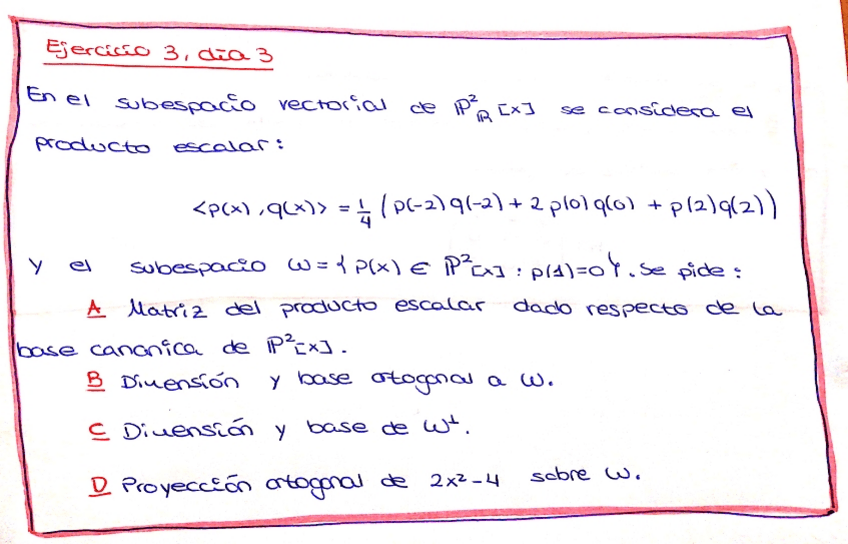 Ejercicio 3, día 3
En el subespacio vectorial de ℙ²ℝ [x] se considera el
producto escalar:
<p(x), q(x)> = 1/4 (p(-2) q(-2) + 2 p(0) q(0) + p(2) q(2))
y el subespacio W = { p(x) ∈ ℙ²[x] : p(1)=0 }. Se pide:
A Matriz del producto escalar dado respecto de la
base canonica de ℙ²[x].
B Dimensión y base ortogonal a W.
C Dimensión y base de W⊥.
D Proyección ortogonal de 2x²-4 sobre W.